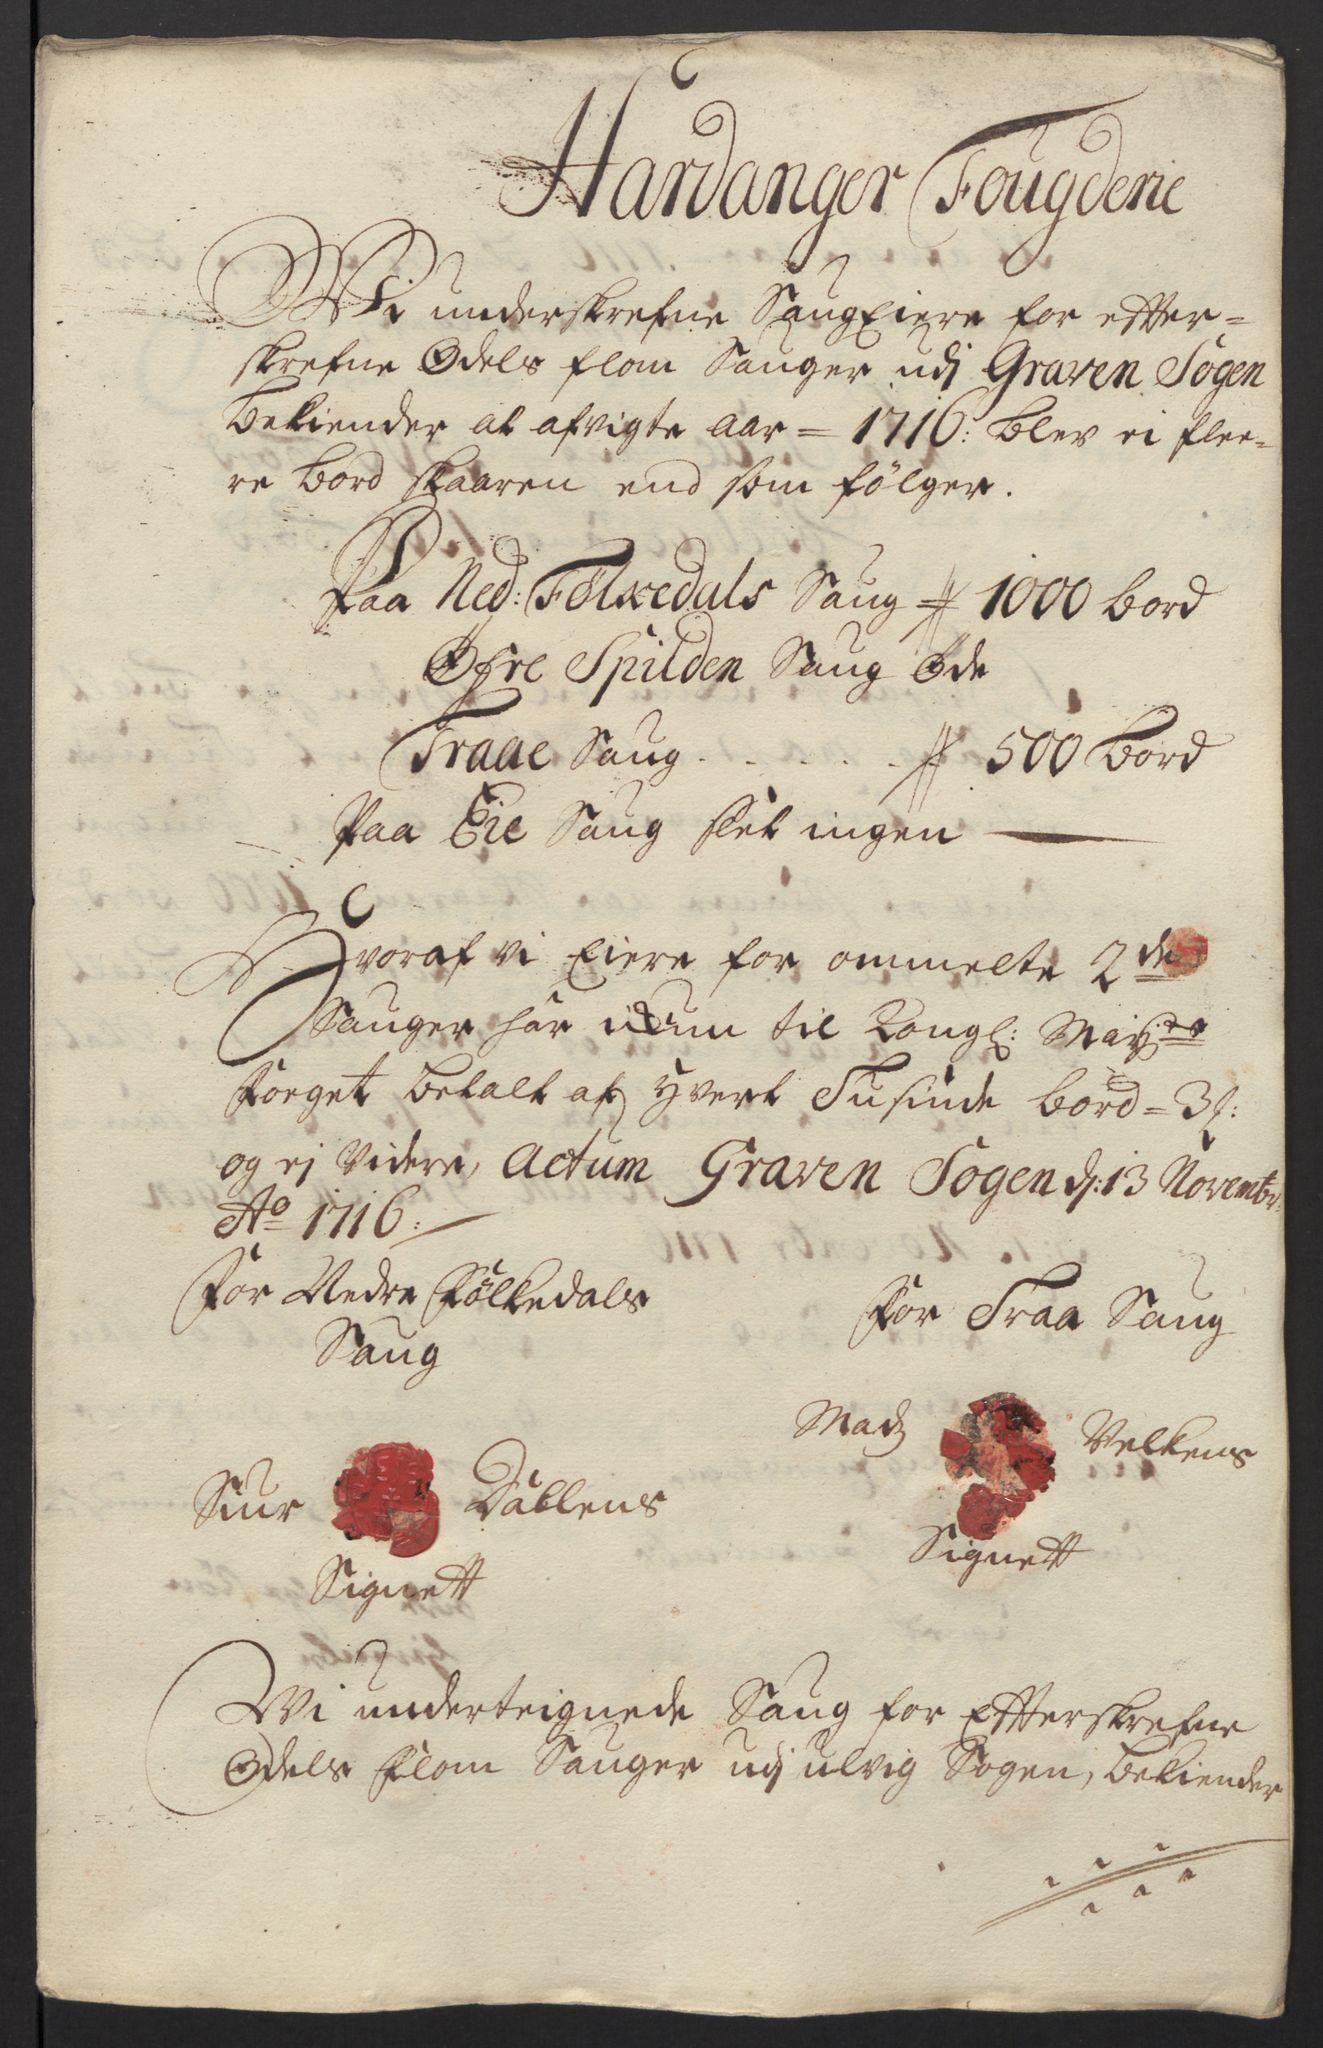 Hardanger Fougderie
Wi underskrefne Saug Eiere for effter=
skrefne Odels flom Sauger udj Graven Sogen
bekiender at afvigte aar = 1716: blev ei flee=
re bord skaaren end som følger.
Paa Ned: Folkedals Saug = 1000 bord
Øfre Spilden Saug Øde
Traae Saug . . . . . 500 Bord
Paa Eie Saug slet ingen
Hvoraf vi Eiere for ommelte 2de
Sauger har til Kongl: Mayts
Foeget betalt af hvert Tusinde bord = 3
og ej Videre, Actum Graven Sogen d: 13 Novembr:
Ao 1716:
For Nedre Folkedals
Saug
For Traa Saug
Siur Dablens
Signett
Madz Velkens
Signett
Wi underteignede Saug for Effterskrefne
Odels flom Sauger udj Ulvig Sogen, bekiender